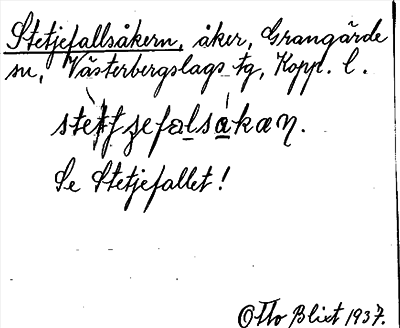 Stetjefallsåkern, åker, Grangärde
sn, Västerbergslags tg, Kopp. l.
Se Stetjefallet!
Otto Blixt 1937.